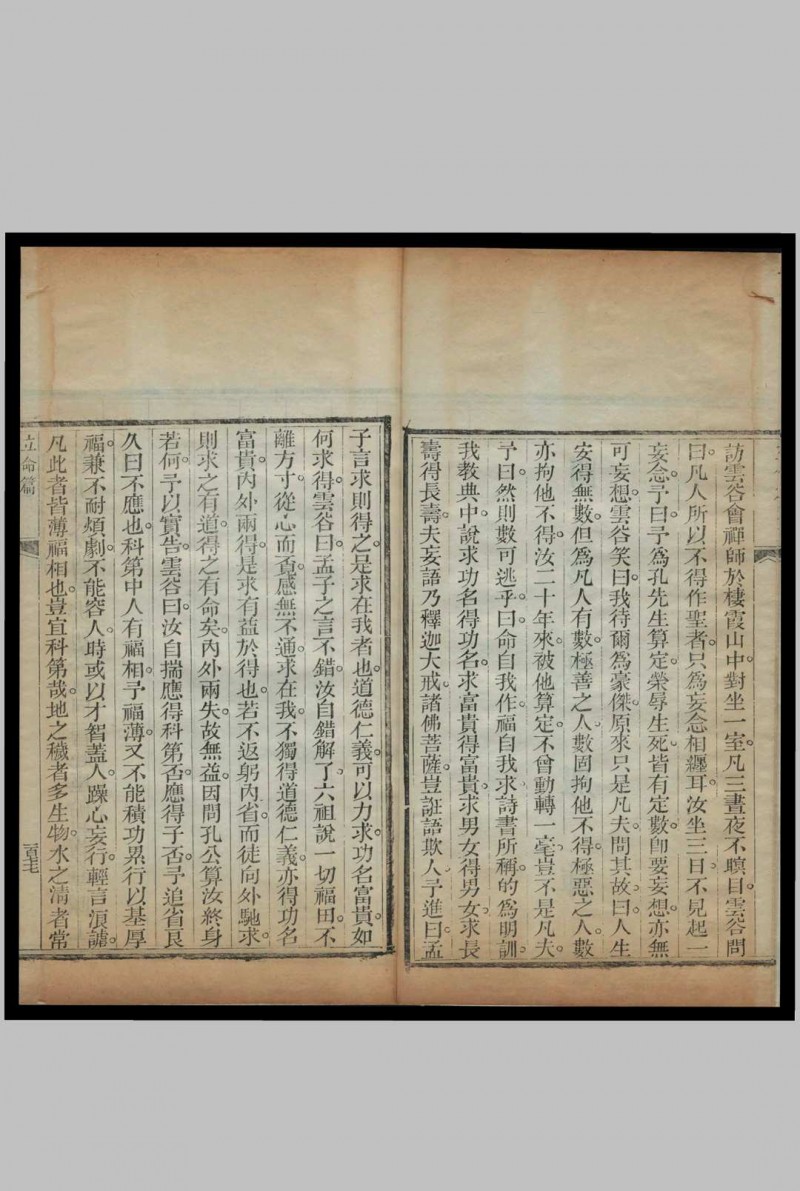 訪雲谷會禪師於棲霞山中。對坐一室。凡三晝夜不瞑目。雲谷問
曰。凡人所以不得作聖者。只為妄念相纏耳。汝坐三日。不見起一
妄念。予曰。予為孔先生算定。榮辱生死。皆有定數。卽要妄想。亦無
可妄想。雲谷笑曰。我待爾為豪傑。原來只是凡夫。問其故。曰。人生
安得無數。但為凡人有數。極善之人。數固拘他不得。極惡之人。數
亦拘他不得。汝二十年來。被他算定。不曾動轉一毫。豈不是凡夫。
予曰。然則數可逃乎。曰。命自我作。福自我求。詩書所稱。的為明訓。
我教典中。說求功名得功名。求富貴得富貴。求男女得男女。求長
壽得長壽。夫妄語乃釋迦大戒。諸佛菩薩。豈誑語欺人。予進曰。孟
子言求則得之。是求在我者也。道德仁義。可以力求。功名富貴。如
何求得。雲谷曰。孟子之言不錯。汝自錯解了。六祖說一切福田。不
離方寸。從心而覔。感無不通。求在我。不獨得道德仁義。亦得功名
富貴。內外兩得。是求有益於得也。若不返躬內省。而徒向外馳求。
則求之有道。得之有命矣。內外兩失。故無益。因問孔公算汝終身
若何。予以實告。雲谷曰。汝自揣應得科第否。應得子否。予追省良
久曰。不應也。科第中人有福相。予福薄。又不能積功累行以基厚
福。兼不耐煩劇。不能容人。時或以才智蓋人。躁心妄行。輕言浪謔。
凡此者。皆薄福相也。豈宜科第哉。地之穢者多生物。水之清者常
立命篇